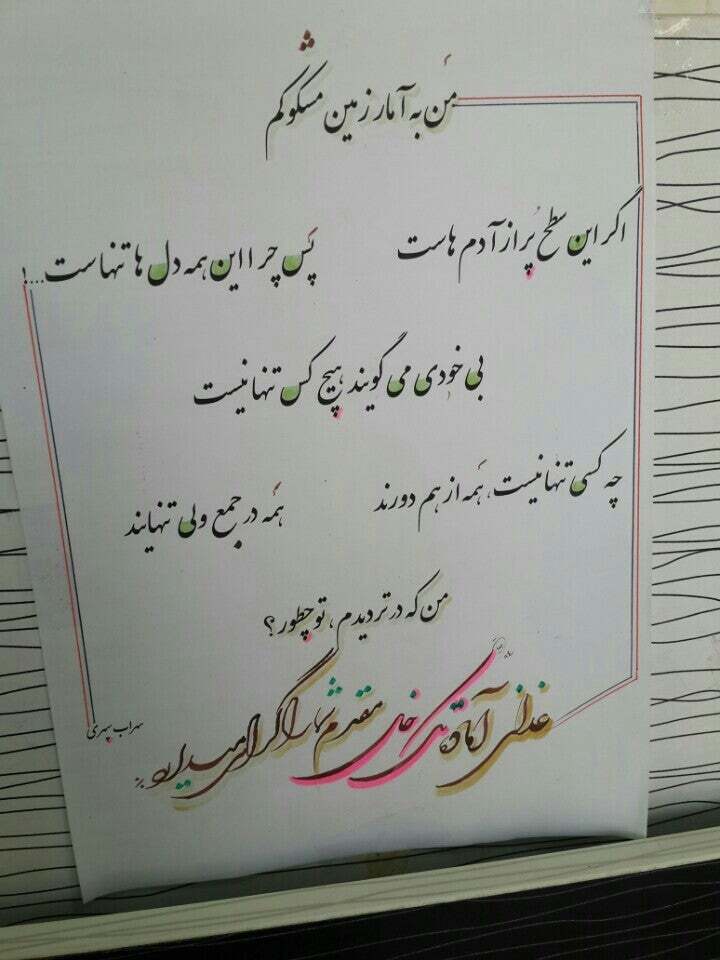 من به آمار زمین مشکوکم
اگر این سطح پر از آدم هاست
پس چرا این همه دل ها تنهاست...!
بی خودی می گویند هیچ کس تنها نیست
چه کسی تنها نیست، همه از هم دورند
همه در جمع ولی تنهایند
من که در تردیدم، تو چطور؟
غذای آماده نیک خلق مقدم شما را گرامی میدارد
سهراب سپهری